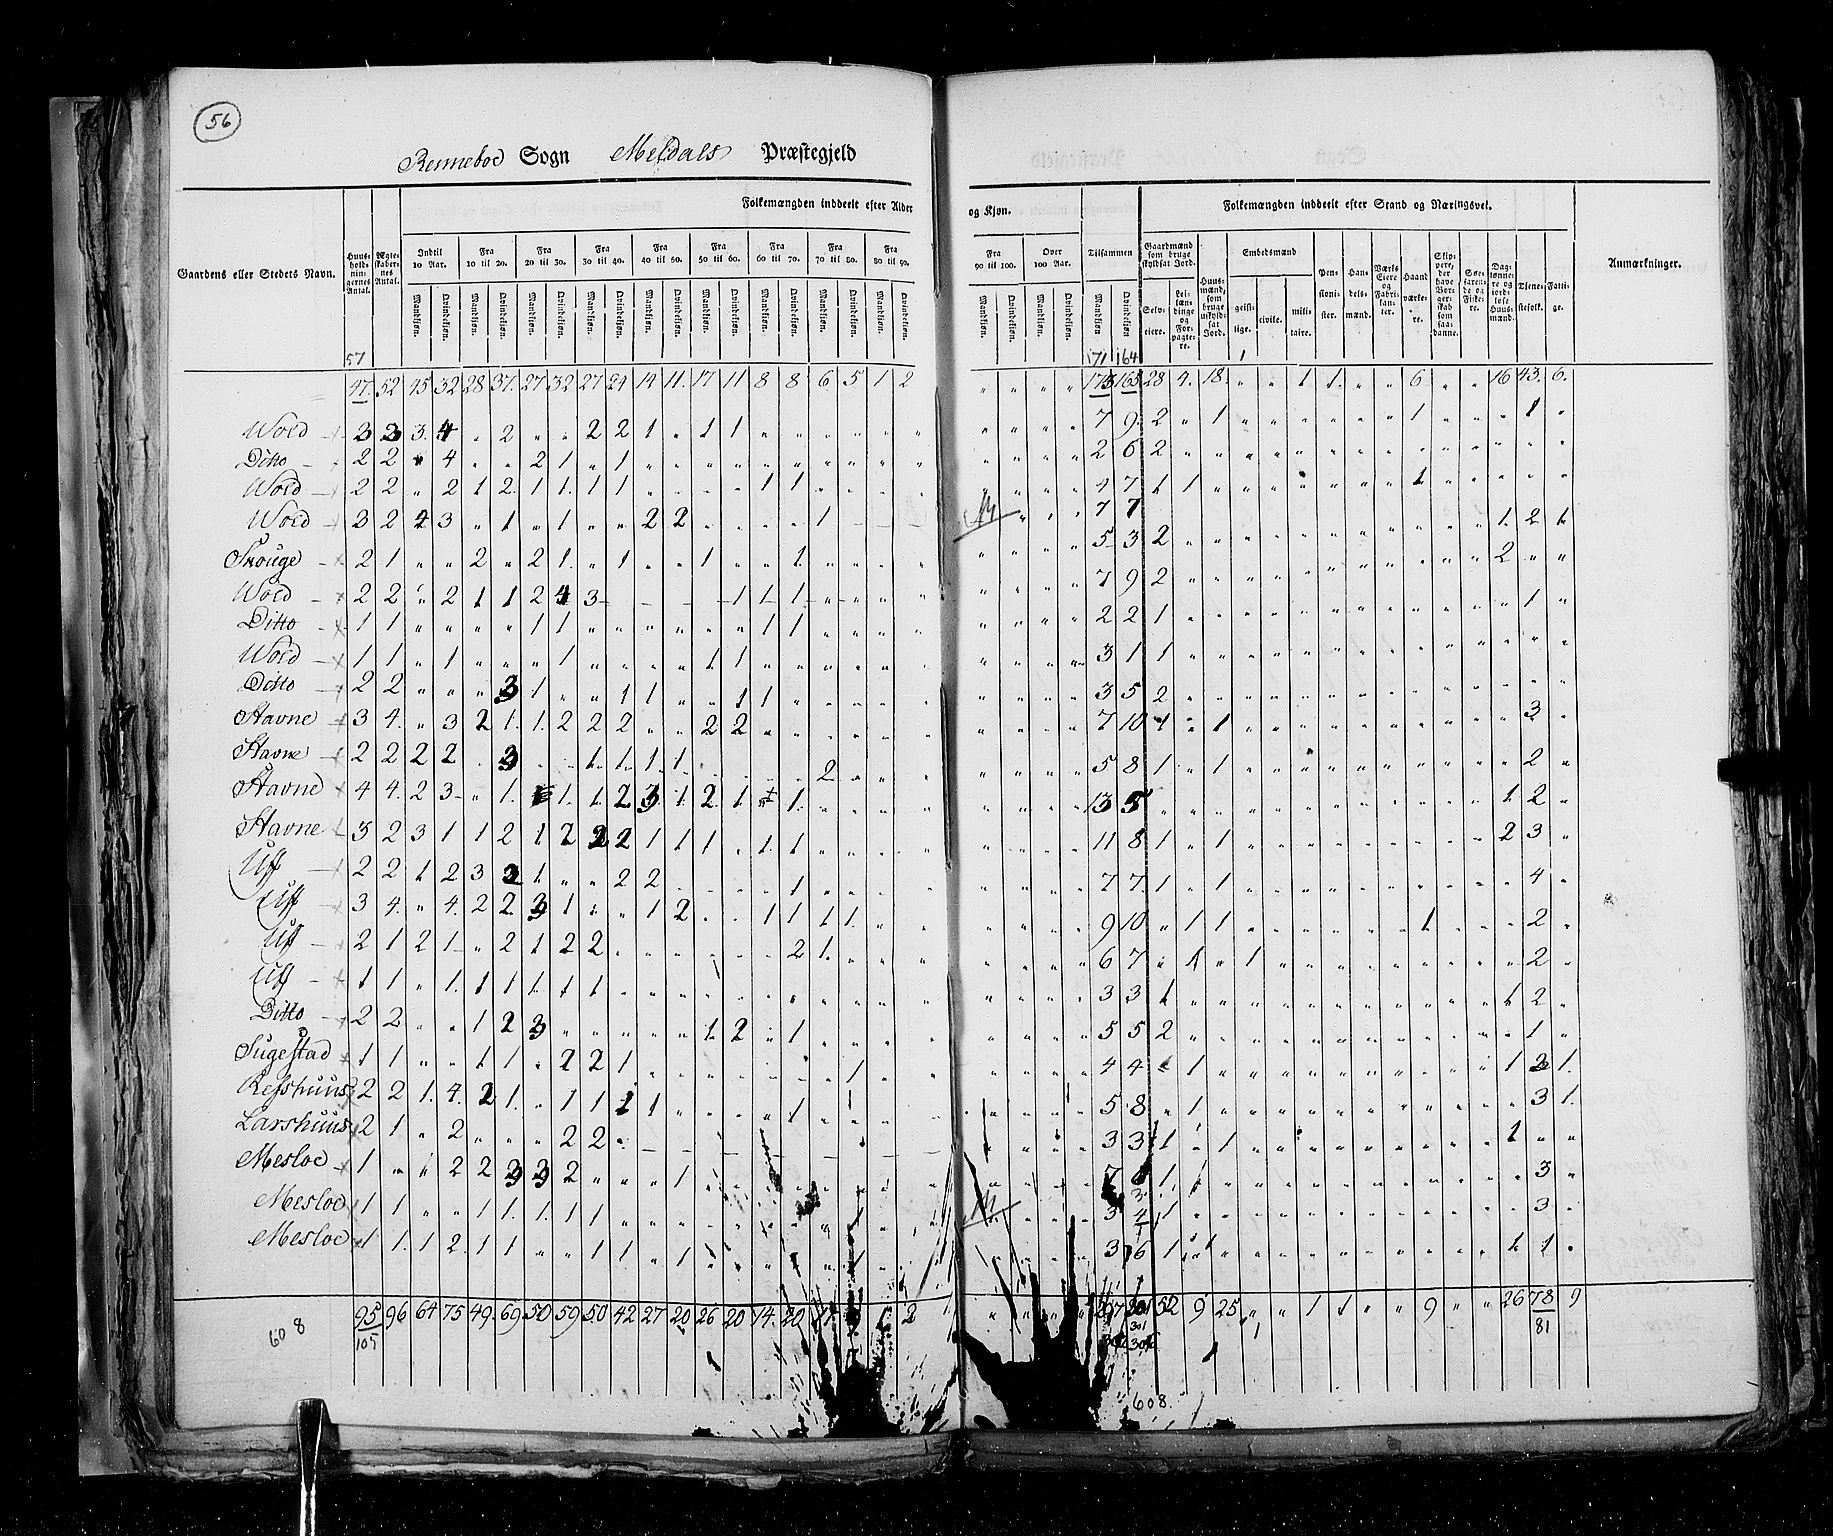 56
Renneboe Sogn Meldals Præstegjeld
Gaardens eller Stedets Navn.
Huusholdningernes Antal.
Ægteskabernes Antal.
Folkemængden inddeelt efter Alder
og Kjøn.
Folkemængden inddeelt efter Stand og Næringsvei.
Anmærkninger.
Indtil 10 Aar. Fra 10 til 20. Fra 20 til 30. Fra 30 til 40. Fra 40 til 50. Fra 50 til 60. Fra 60 til 70. Fra 70 til 80. Fra 80 til 90.
Fra 90 til 100. Over 100 Aar. Tilsammen
Mandkjøn. Qvindekjøn.
Gaardmænd som bruge skyldsat Jord.
Selveiere. Leilændinge og Forpagtere.
Huusmænd, som bruge uskyldsat Jord.
Embedsmænd
geistlige. civile. militaire.
Pensionister. Handelsmænd. Værks Eiere og Fabrikanter. Haandværkere. Skippere, der have Borgerskab som saadanne. Søefarende og Fiskere. Daglønnere og jordløse Huusmænd. Tjenestefolk. Fattige.
57 171 164 1
47. 52 45 32 28 37. 27 32 27 24 14 11. 17 11 8 8 6 5 1 2 165 28 4. 18. 1 1. 6 16 43. 6.
Wold 3 3 3 4 2 2 2 1 1 1 7 9 2 1 1 1
Ditto 2 2 4 2 1 1 2 6 2
Wold 2 2 2 1 2 1 1 1 1 1 1 4 7 1 1 1
Wold 3 2 2 3 1 1 2 2 1 7 7 1. 2 1
Skouge 2 1 2 2 1 1 1 1 5 3 2 2
Wold 2 2 2 1 1 2 4 3 1 1 1 7 9 2
Ditto 1 1 1 1 1 1 2 2 1 1
Wold 1 1 1 1 1 1 3 1 1
Ditto 2 2 3 1 1 1 1 1 3 5 2
Stavne 3 4 3 2 1. 1. 2 2 2 2 2 7 10 1 1 3
Stavne 2 2 2 2 3 1. 1. 1. 1. 2 5 8 1 1 2
Stavne 4 4. 2 3 1. 1. 1. 2 3 1. 2 1 1. 13 5 1 2
Stavne 3 2 3 1 1 2 1 2 2 2 1 1 1 1 1 11 8 1 1 2 3
Uff 2 2 1 2 3 2 1 2 2 1 7 7 1 1 4
Uff 3 4. 4. 2 2 3 1 1 2 1 1 1 1 9 10 1 1 1 2
Uff 2 1 2 1 2 1 2 2 2 1 6 7 1 1 2
Uff 1 1 1. 1 1 1. 1 1 3 3 1 1 2
Ditto 2 2 1 2 3 1 2 1 5 5 2 1
Sugestad 1 1 1 1 2 2 1 1 4 4 1 1 1.
Refshuus 2 2 1. 4. 2 1. 1 1 1 1 1 5 8 1 3 1.
Larshuus 2 1 2 2 2 3 3 1 1 1
Mesloe 1 2 2 3 3 2 1 7 1 3
Mesloe 1 1 1 1. 1. 1 1 3 4 1 3
Mesloe 1 1. 1 2 1 1 1 1 1 1 3 6 1 1 1 1
95 96 64 75 49. 69 50 59 50 42 27 20 26 20 14. 20 2 52 9 25 1 1 9 26 78 9
105 301 81
608
608